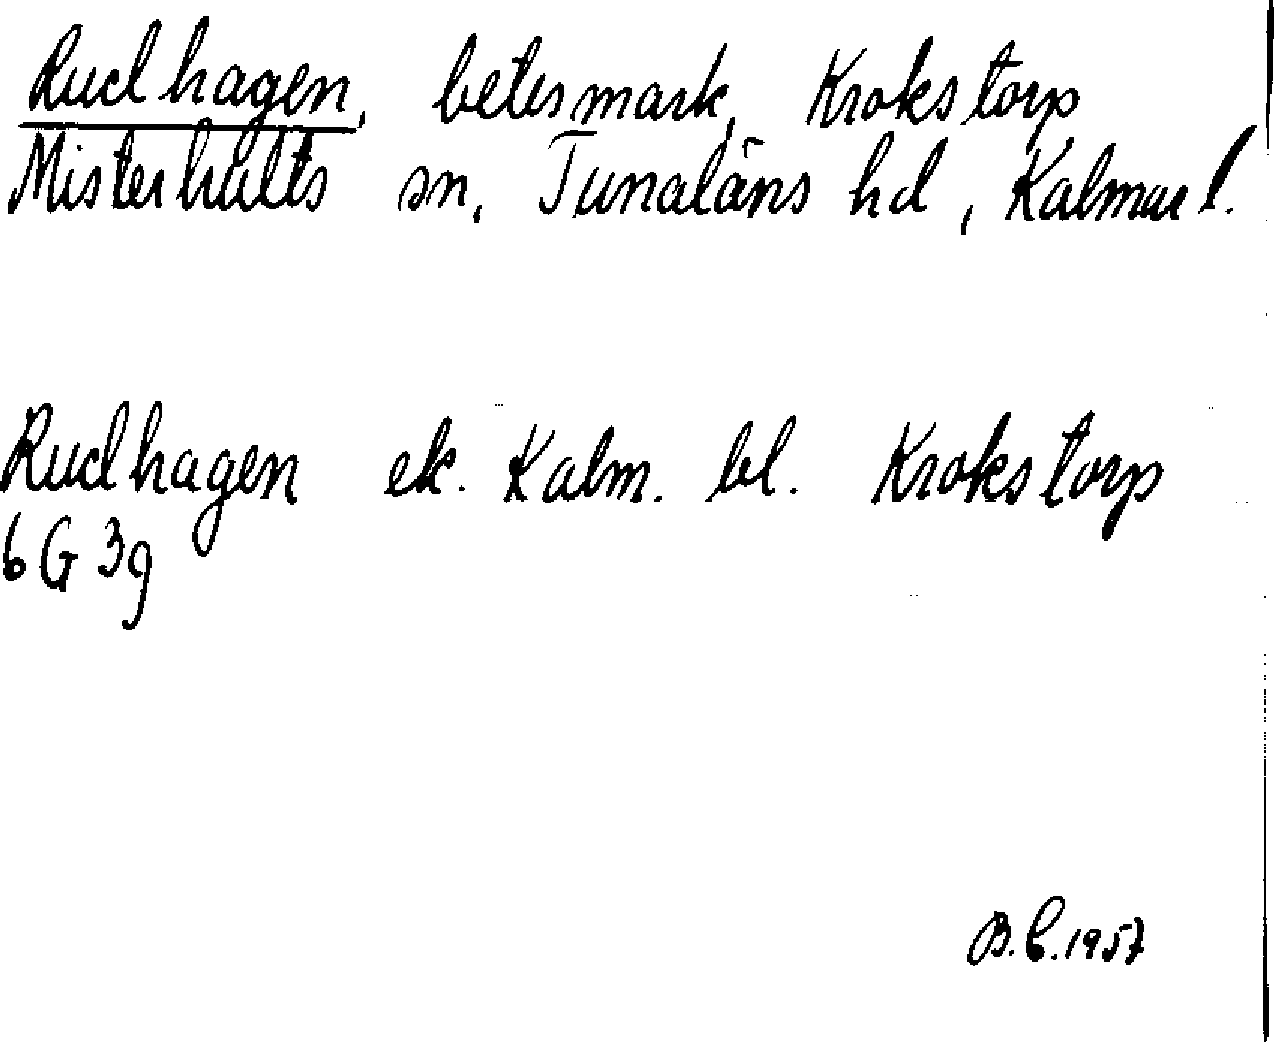 Rudhagen, betesmark, Krokstorp
Misterhults sn, Tunaläns hd, Kalmar l.
Rudhagen ek. Kalm. bl. Krokstorp
6 G 3g
B.C. 1957